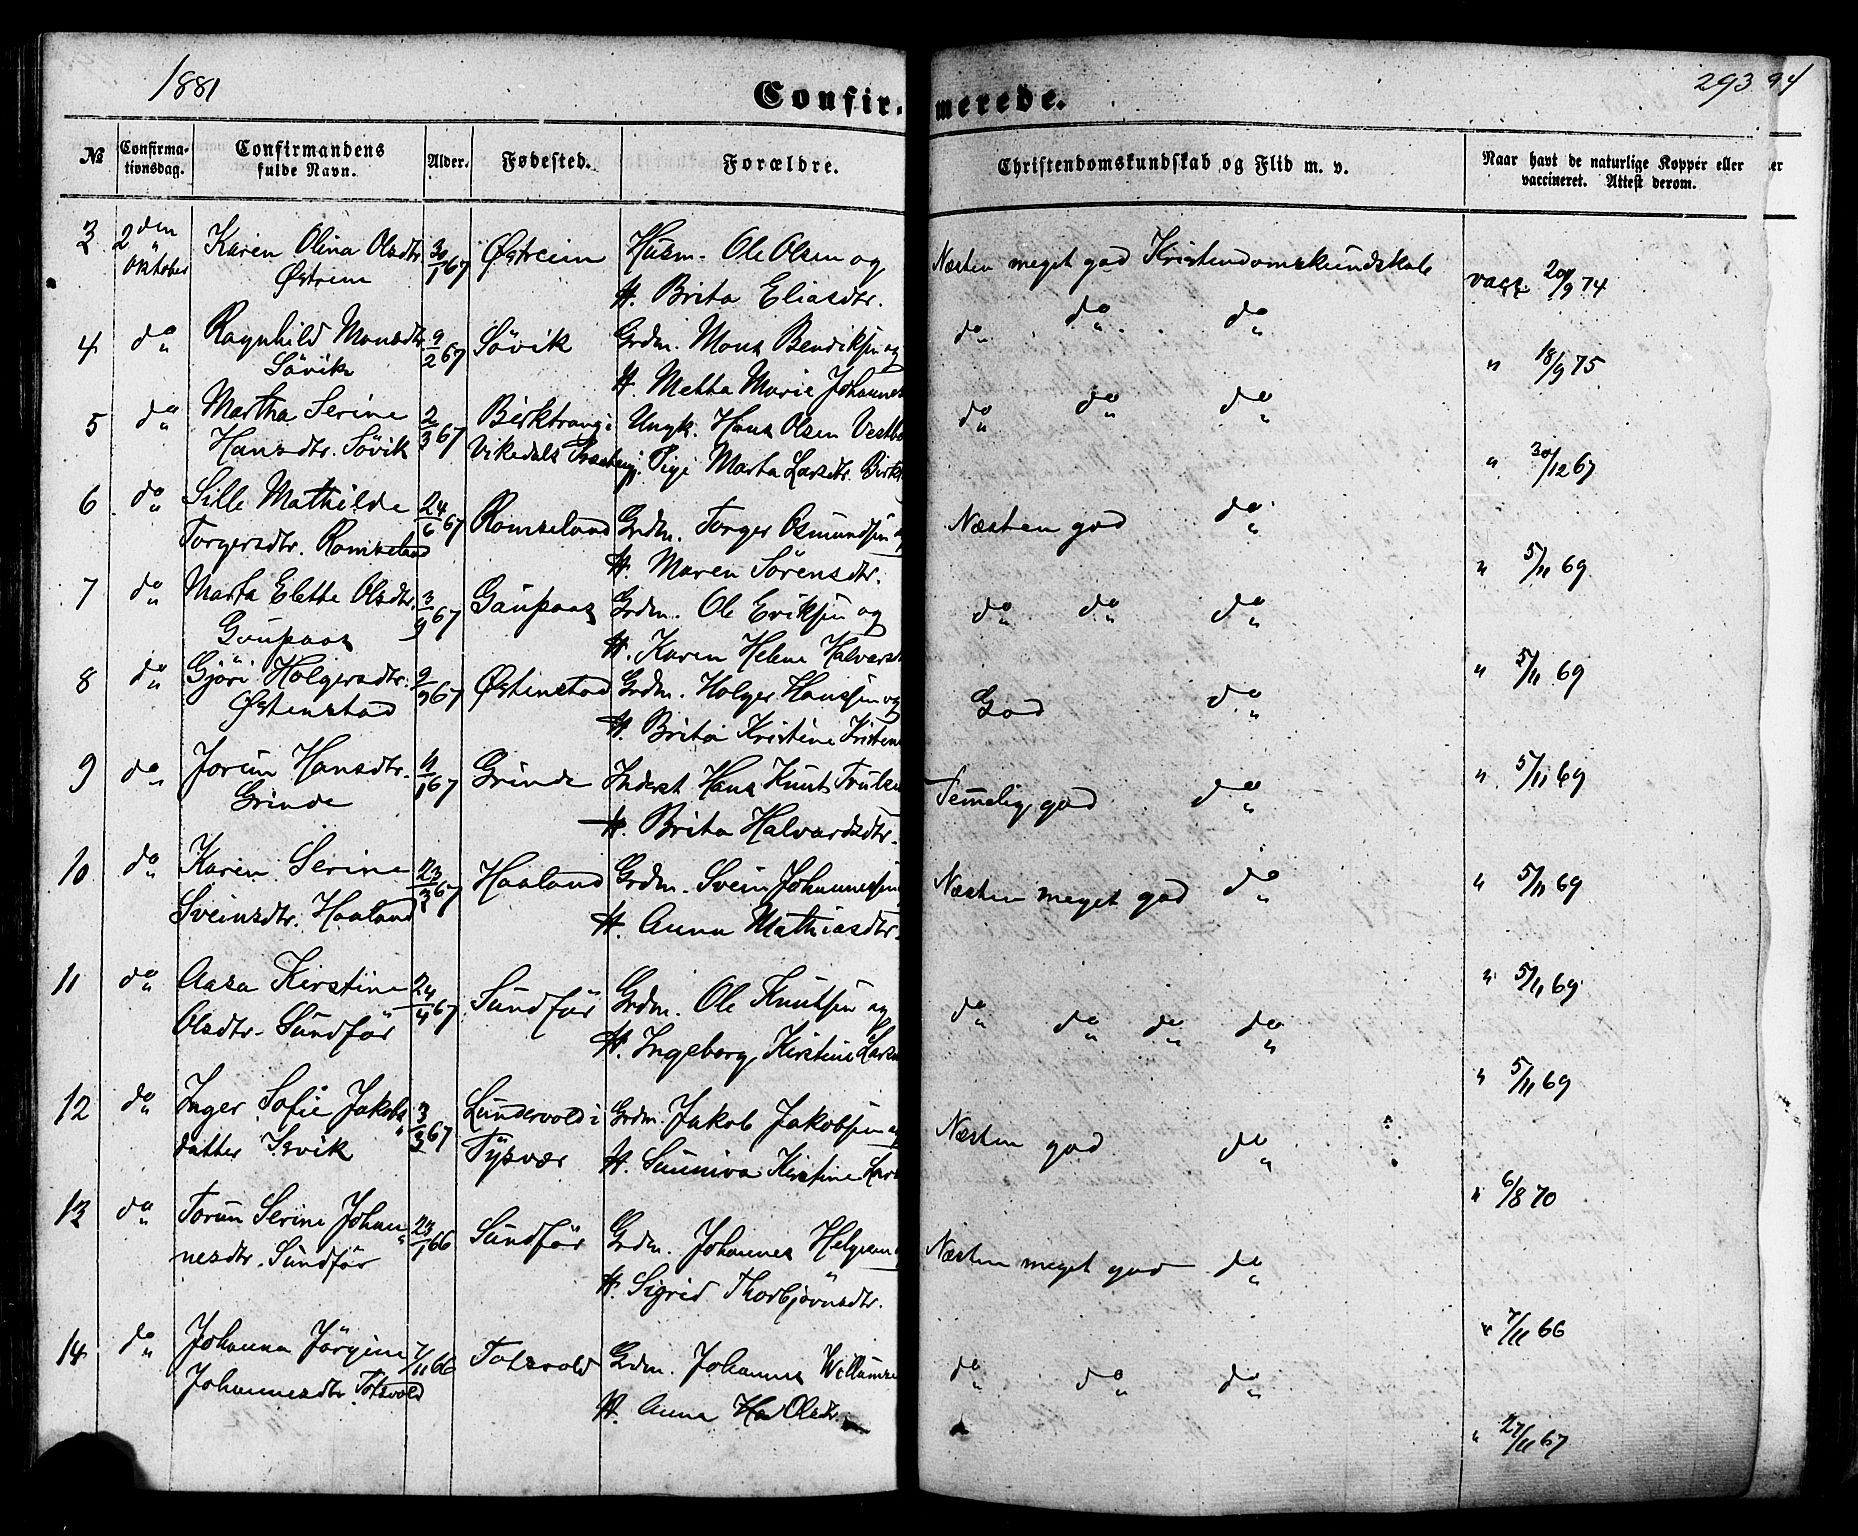 1881
Confir- merede.
293 94
No Confirma- tionsdag. Confirmandens fulde Navn. Alder. Fødested. Forældre. Christendomskundskab og Flid m. v. Naar havt de naturlige Kopper eller vaccineret. Attest derom.
3 2den Karen Olina Olsdtr. 30/1 67 Østreim Husm. Ole Olsen og Næsten meget god Kristendomskundskab vacc. 20/9 74
Oktober Østrem H. Brita Eliasdtr.
4 do Ragnhild Monsdtr. 9/2 67 Søvik Grdm. Mons Bendiksen og do do do " 18/9 75
Søvik H. Metta Marie Johannes
5 do Martha Serine 2/3 67 Birktrang i Ungk. Hans Olsen do do do " 30/12 67
Hansdtr. Søvik Vikedals Pige Marta Larsdtr.
6 do Sille Mathilde 24/6 67 Romseland Grdm. Torger Osmundsen og Næsten god do " 5/11 69
Torgersdtr. Romseland H. Maren Sörensdtr.
7 do Marta Elette Olsdtr. 3/9 67 Gaupaas Grdm. Ole Eriksen og do do do " 5/11 69
Gaupaas H. Karen Helene Halvarsd
8 do Gjöri Holgersdtr. 9/9 67 Østenstad Grdm. Holger Hansen og God do " 5/11 69
Østenstad H. Brita Kristine Kristens
9 do Jorun Hansdtr. 11/1 67 Grinde Inderst Hans Knut Trulsen Temelig god do " 5/11 69
Grinde H. Brita Halvardsdtr.
10 do Karen Serine 23/3 67 Haaland Grdm. Svein Johannessen Næsten meget god do " 5/11 69
Sveinsdtr. Haaland H. Anna Mathiasdtr.
11 do Aasa Kirstine 24/4 67 Sundför Grdm. Ole Knutsen og do do do do " 5/11 69
Olsdtr. Sundför H. Ingeborg Kirstine Lars
12 do Inger Sofie Jakobs 3/3 67 Lundervold i Grdm. Jakob Jakobsen og Næsten god do " 6/8 70
datter Isvik Tysvær H. Sunniva Kirstine Lars
13 do Torun Serine Johan 23/1 66 Sundför Grdm. Johannes Helgesen Næsten meget god do " 7/11 66
nesdtr. Sundför H. Sigrid Thorbjörnsdtr.
14 do Johanna Jörgine 7/11 66 Totsvold Grdm. Johannes Willumsen do do do " 27/11 67
Johannesdtr. Totsvold H. Anna Olsdtr.